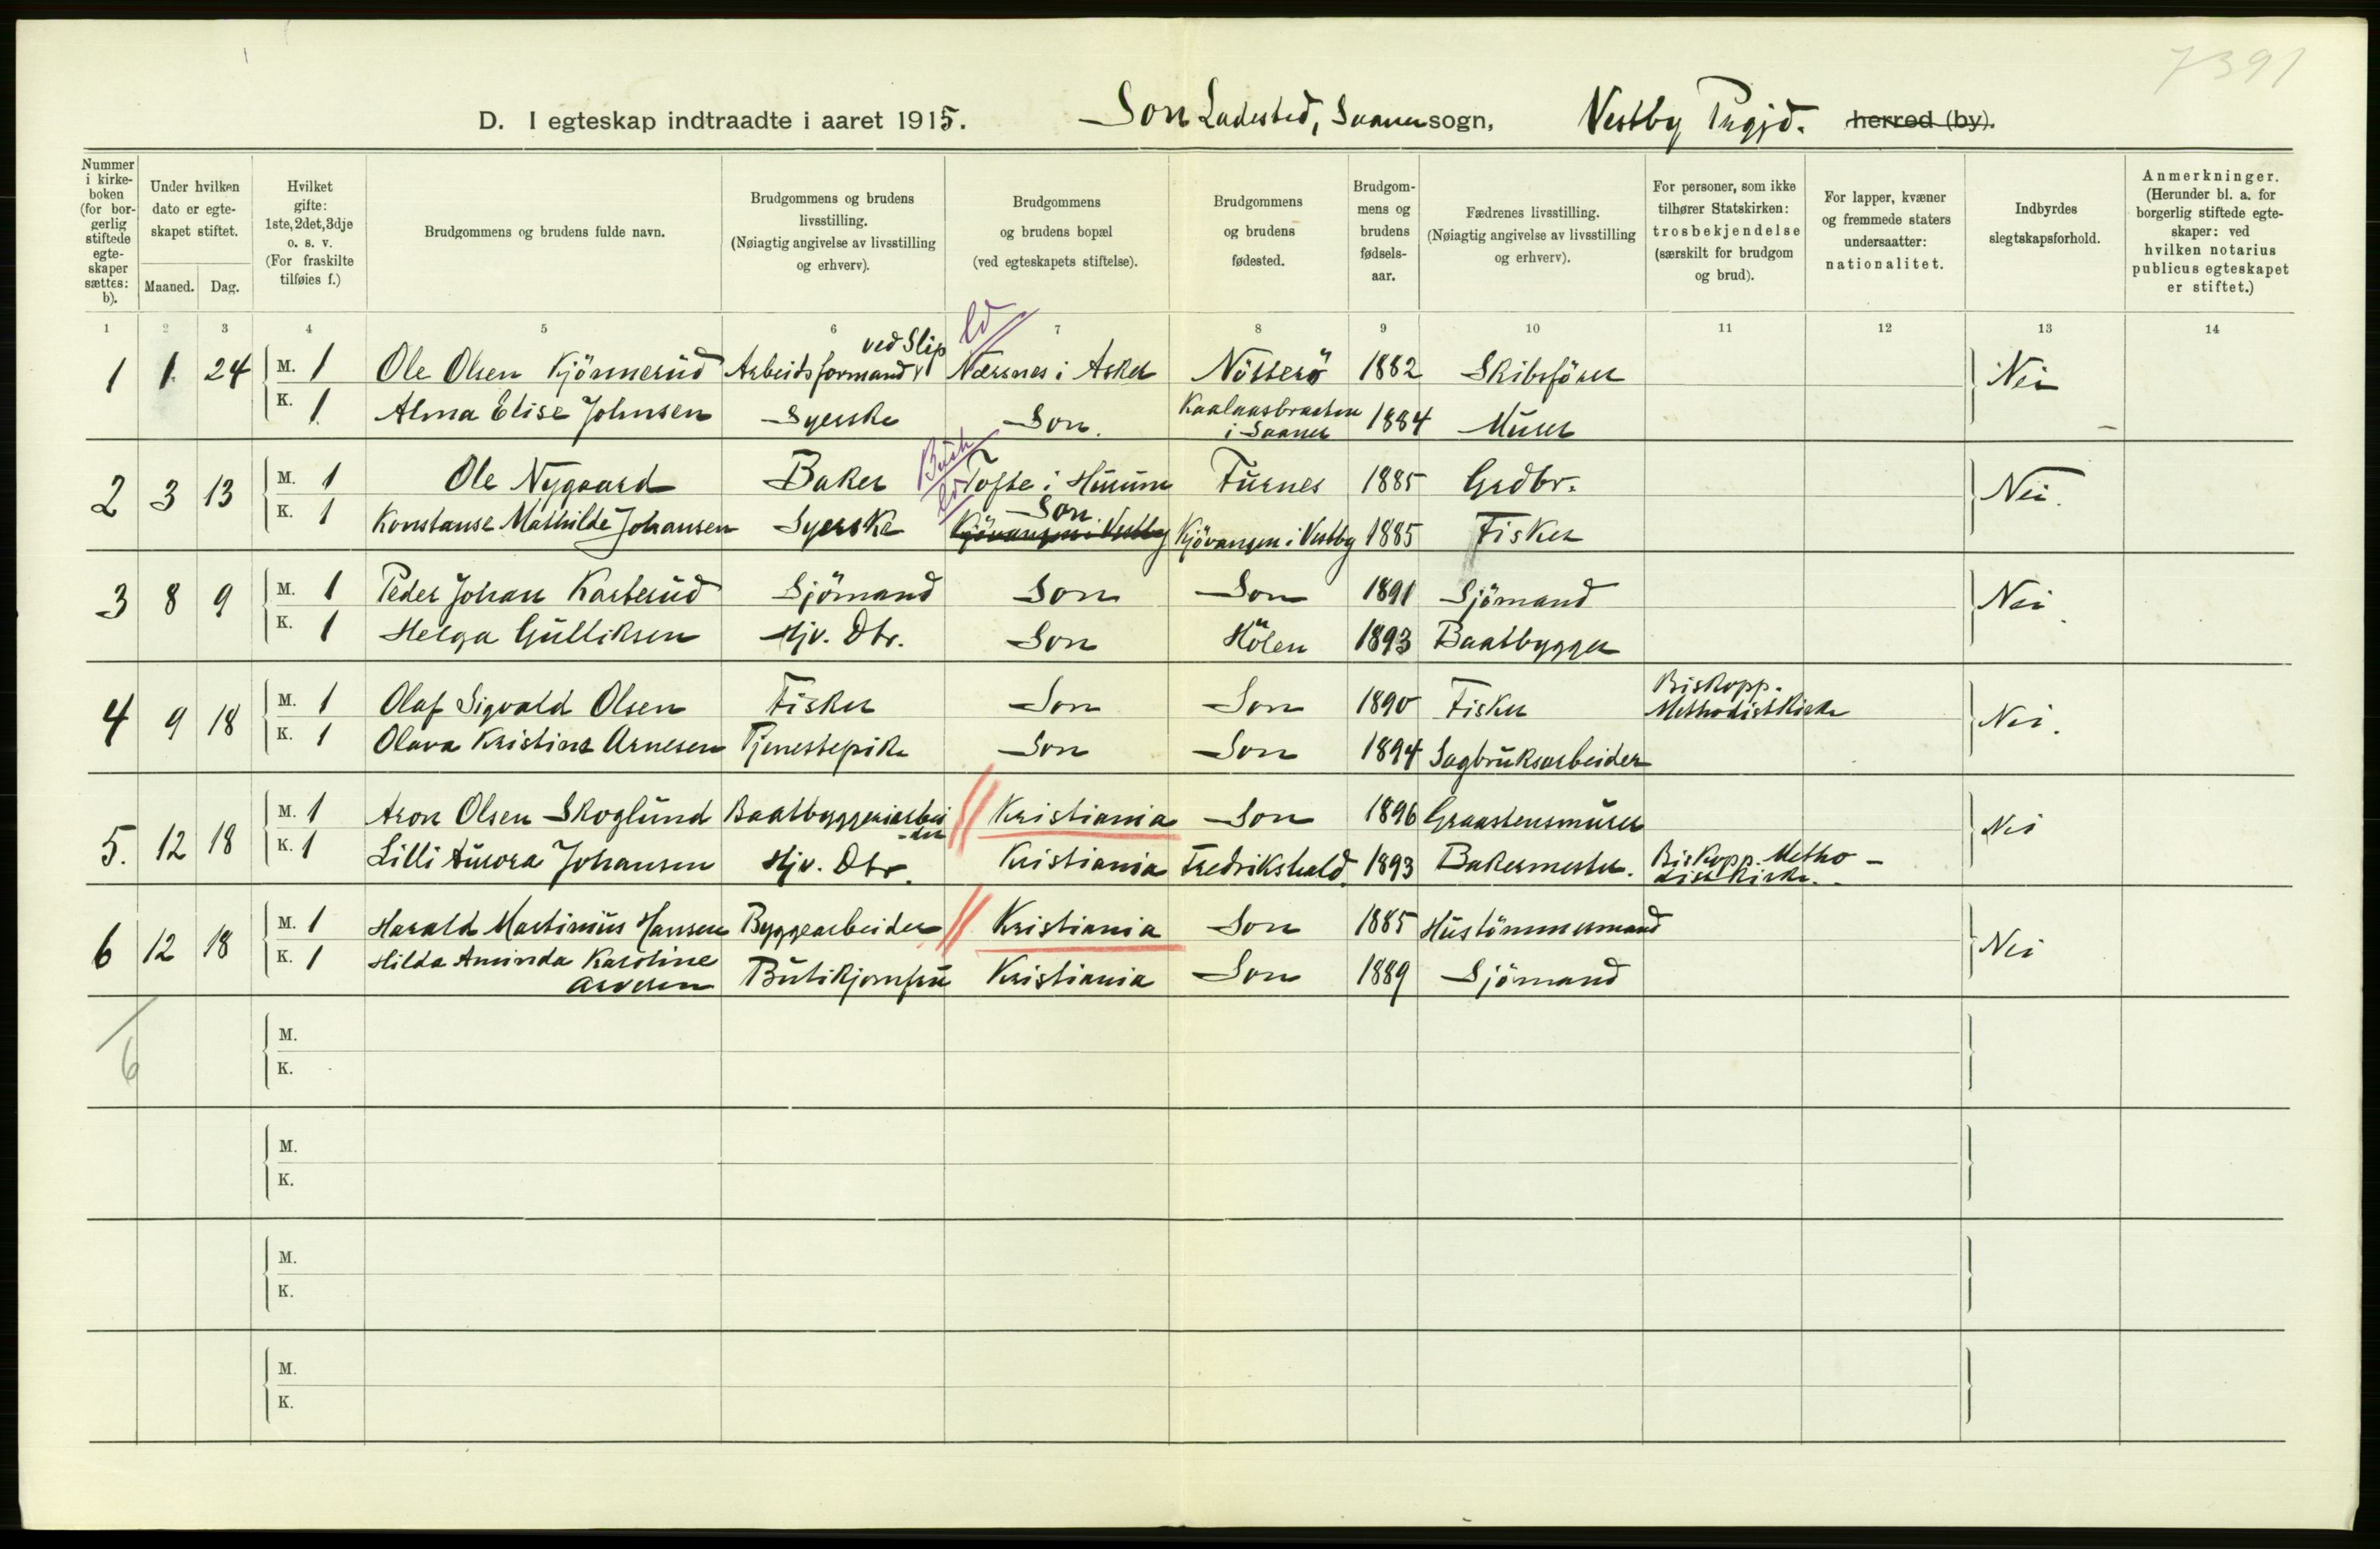 7391
D. I egteskap indtraadte i aaret 1915. Son Ladested, Saaner sogn, Vestby Prgjd. herred (by).
Nummer i kirkeboken (for borgerlig stiftede egteskaper sættes: b).
Under hvilken dato er egteskapet stiftet.
Maaned. Dag.
Hvilket gifte: 1ste, 2det, 3dje o. s. v. (For fraskilte tilføies f.)
Brudgommens og brudens fulde navn.
Brudgommens og brudens livsstilling. (Nøiagtig angivelse av livsstilling og erhverv).
Brudgommens og brudens bopæl (ved egteskapets stiftelse).
Brudgommens og brudens fødested.
Brudgommens og brudens fødselsaar.
Fædrenes livsstilling. (Nøiagtig angivelse av livsstilling og erhverv).
For personer, som ikke tilhører Statskirken: trosbekjendelse (særskilt for brudgom og brud).
For lapper, kvæner og fremmede staters undersaatter: nationalitet.
Indbyrdes slegtskapsforhold.
Anmerkninger. (Herunder bl. a. for borgerlig stiftede egteskaper: ved hvilken notarius publicus egteskapet er stiftet.)
1 2 3 4 5 6 7 8 9 10 11 12 13 14
1 1. 24 M. 1 Ole Olsen Kjönnerud Arbeidsformand ved Slip Nærsnes i Asker Nötterö 1882 Skibsförer Nei
K. 1 Alma Elise Johnsen Syerske Son. Kaalaasbraaten i Saaner 1884 Murer
2 3 13 M. 1 Ole Nygaard Baker Tofte i Hurum Furnes 1885 Grdbr. Nei.
K. 1 Konstanse Mathilde Johansen Syerske Son Kjövangen i Vestby Kjövangen i Vestby 1885 Fisker
3 8 9 M. 1 Peder Johan Karterud Sjömand Son Son 1891 Sjömand Nei.
K. 1 Helga Gulliksen Hjv. Dtr. Son Hölen 1893 Baatbygger
4 9 18 M. 1 Olaf Sigvald Olsen Fisker Son Son 1890 Fisker Biskopp. Methodistkirke Nei.
K. 1 Olava Kristine Arnesen Tjenestepike Son Son 1894 Sagbruksarbeider
5. 12 18 M. 1 Aron Olsen Skoglund Baatbyggeriarbeider Kristiania Son 1896 Graastensmurer Nei
K. 1 Lilli Aurora Johansen Hjv. Dtr. Kristiania Fredrikshald. 1893 Bakermester. Biskopp. Methodistkirke.
6 12 18 M. 1 Harald Martinius Hansen Byggearbeider Kristiania Son 1885 Hustömmermand Nei
K. 1 Hilda Aminda Karoline Arvesen Butikjomfru Kristiania Son 1889 Sjömand
6
M.
K.
M.
K.
M.
K.
M.
K.